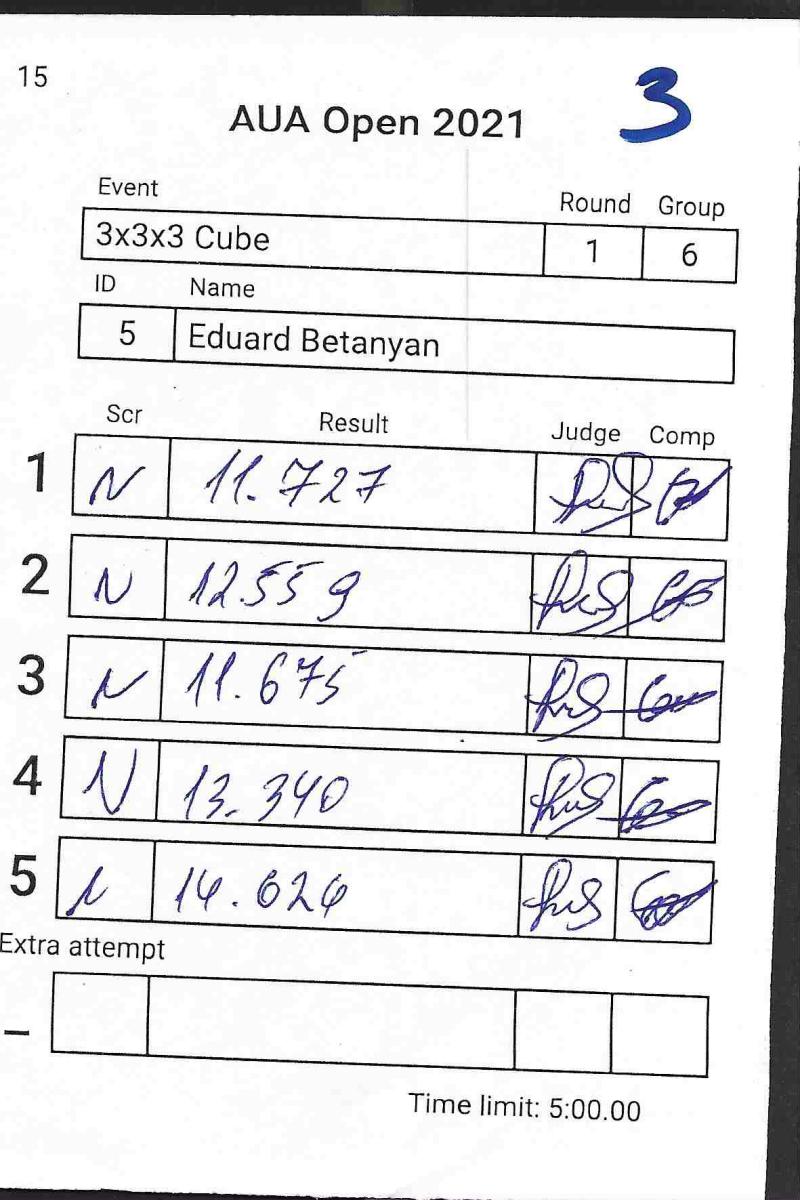 15
3
AUA Open 2021
Event Round Group
3x3x3 Cube 1 6
ID Name
5 Eduard Betanyan
Scr Result Judge Comp
1 N 11.727
2 N 12.559
3 N 11.675
4 N 13.340
5 14.624
Extra attempt
–
Time limit: 5:00.00